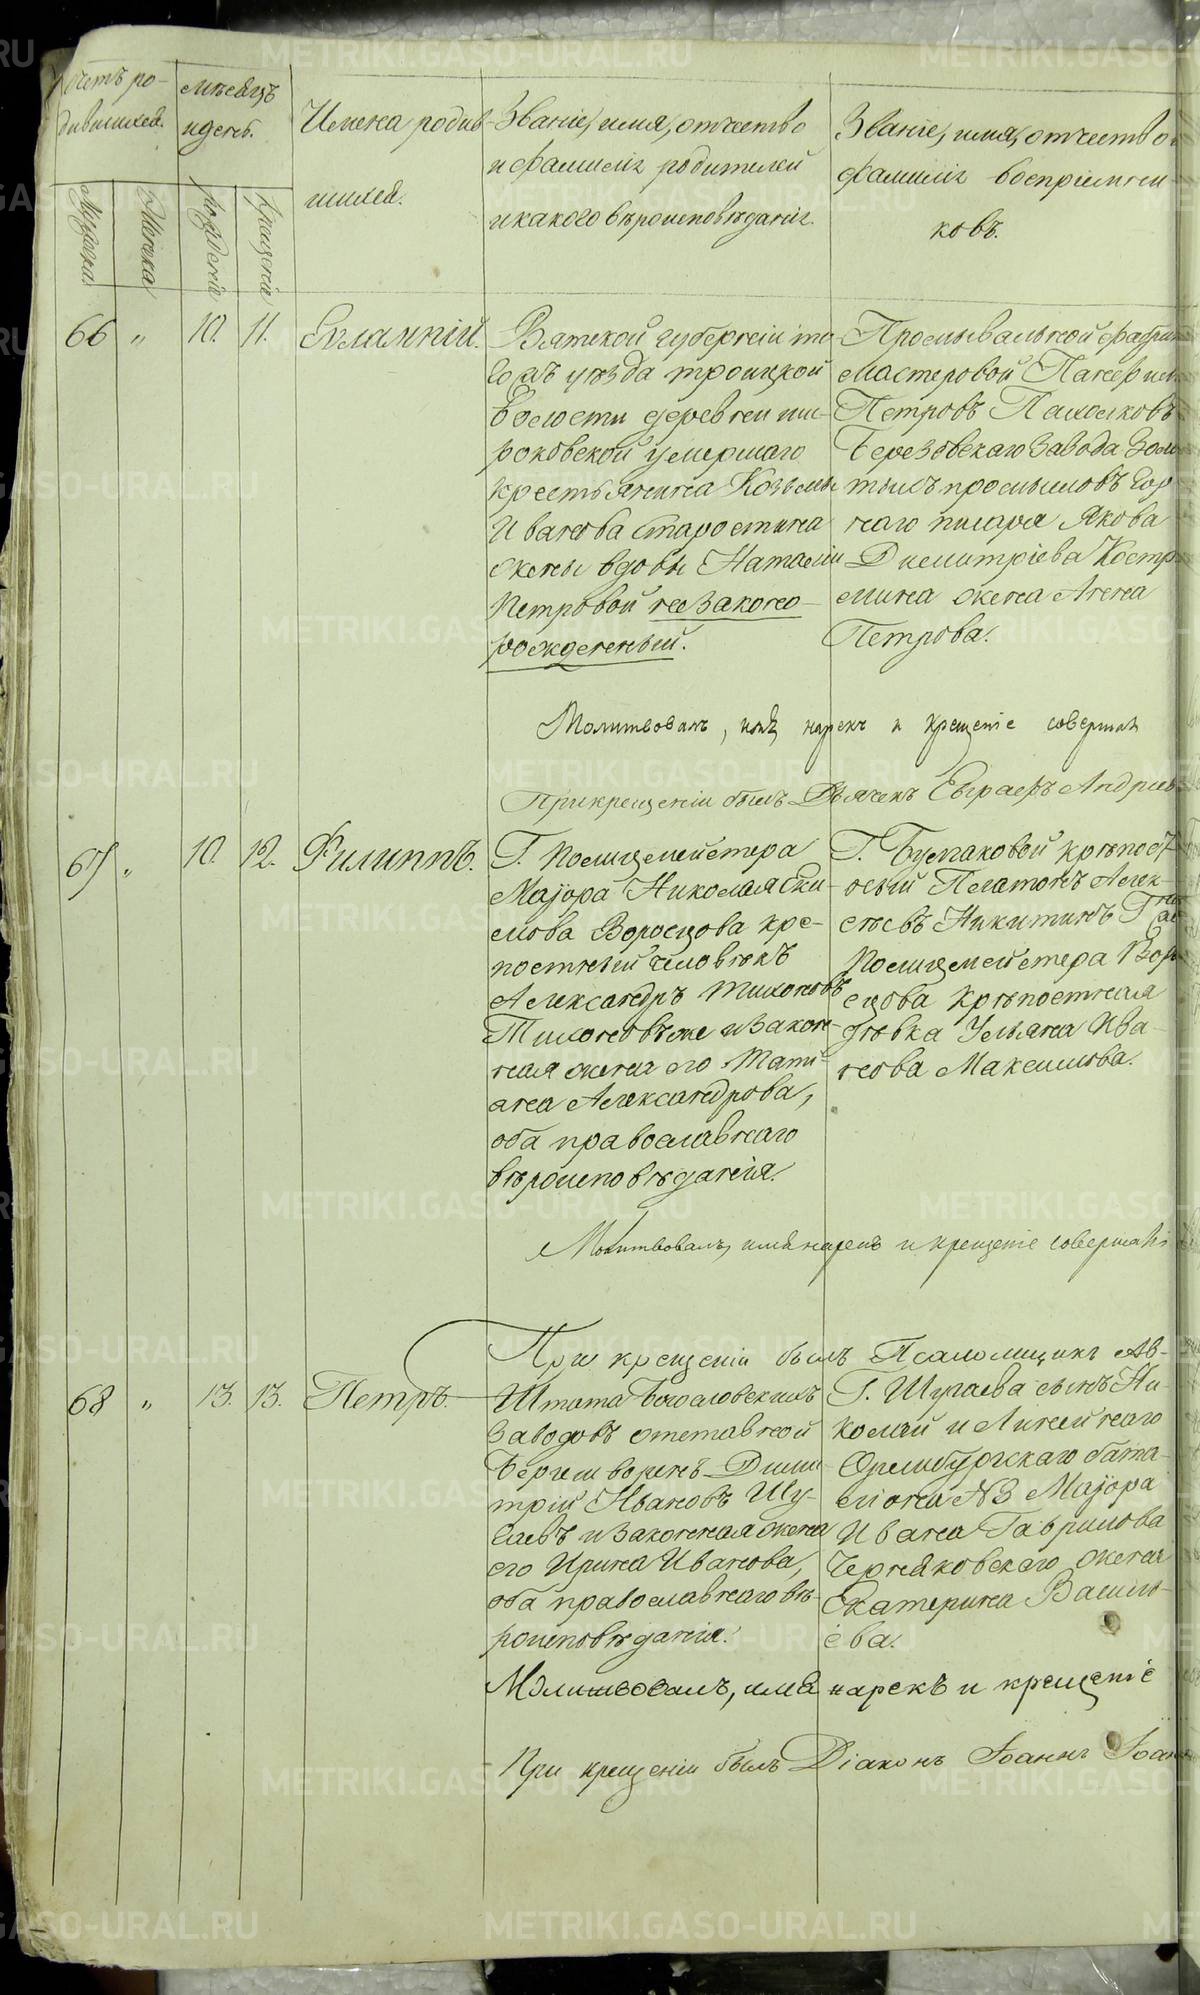 Счетъ ро-
дившихся.
Мужеска.
Женска
мѣсяцъ
и день.
рожденія
крещенія
Имена родив-
шихся.
Званіе, имя, отчество
и фамилія родителей
и какого вѣроисповѣданія.
Званіе, имя, отчество
фамилія воспріемни-
ковъ.
66 " 10. 11. Евлампій.
Вятской губерніи то
уѣзда троицкой
волости деревни ши-
роковской умершаго
крестьянина Козьмы
Иванова Старостина
жены вдовы Наталіи
Петровой незаконно-
рожденный.
Промывальной фабри
мастеровой
Петровъ Пахомковъ
Березовскаго завода золо
тыхъ промысловъ гор
наго писаря Якова
Димитріева Костр
мина жена Анна
Петрова.
Молитвовалъ, имя нарекъ и крещеніе совершал
При крещеніи былъ Дьячекъ Евграфъ Андрие
67 " 10. 12. Филиппъ.
Г. Полицмейстера
Маіора Николая
Воронцова кре-
постный человѣкъ
Александръ Тихоновъ
Тихоновъ же и закон-
ная жена его Тати-
ана Александрова,
оба православнаго
вѣроисповѣданія.
Г. Булгаковой крѣпост-
ный Платонъ Алек-
сѣевъ Никитинъ
Полицмейстера Вор
цова крѣпостная
дѣвка Ульяна Ива-
нова Максимова.
Молитвовалъ, имя нарекъ и крещеніе совершалъ
При крещеніи былъ Псаломщикъ Ав-
68 " 13. 13. Петръ.
Штата Богословскихъ
заводовъ отставной
Бергешворенъ Дими
трій Ивановъ Шу-
и законная жена
его Ирина Иванова,
оба православнаго вѣ-
роисповѣданія.
Г. сынъ Ни-
колай и Линейнаго
Оренбургскаго бата-
ліона №3 Маіора
Ивана Гаврилова
Черняковскаго жена
Екатерина Василь-
ева.
Молитвовалъ, имя нарекъ и крещеніе
При крещеніи былъ Діаконъ Іоаннъ Іоан